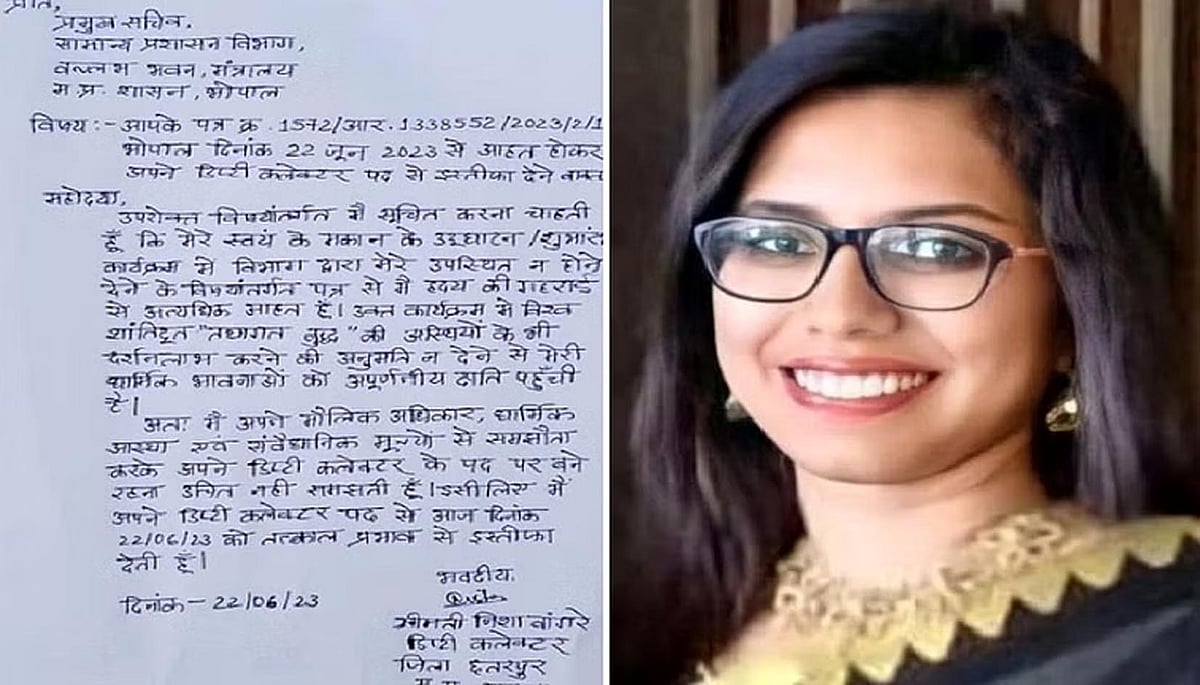 प्रति,
प्रमुख सचिव,
सामान्य प्रशासन विभाग,
वल्लभ भवन, मंत्रालय
म.प्र. शासन, भोपाल
विषय :- आपके पत्र क्र. 1572/आर. 1338552/2023/2/1
भोपाल दिनांक 22 जून 2023 से आहत होकर
अपने डिप्टी कलेक्टर पद से इस्तीफा देने बाबत
महोदया,
उपरोक्त विषयांतर्गत मैं सूचित करना चाहती
हूँ कि मेरे स्वयं के मकान के उद्घाटन /
कार्यक्रम में विभाग द्वारा मेरे उपस्थित न होने
देने के विषयांतर्गत पत्र से मैं हृदय की गहराई
से अत्यधिक आहत हूँ। उक्त कार्यक्रम में विश्व
शांतिदूत "तथागत बुद्ध" की अस्थियों के भी
दर्शनलाभ करने की अनुमति न देने से मेरी
धार्मिक भावनाओं को अपूर्णनीय क्षति पहुँची
है।
अतः मैं अपने मौलिक अधिकार, धार्मिक
आस्था एवं संवैधानिक मूल्यों से समझौता
करके अपने डिप्टी कलेक्टर के पद पर बने
रहना उचित नहीं समझती हूँ। इसीलिए मैं
अपने डिप्टी कलेक्टर पद से आज दिनांक
22/06/23 को तत्काल प्रभाव से इस्तीफा
देती हूँ।
भवदीय
दिनांक - 22/06/23
श्रीमती निशा बांगरे
डिप्टी कलेक्टर
जिला छतरपुर